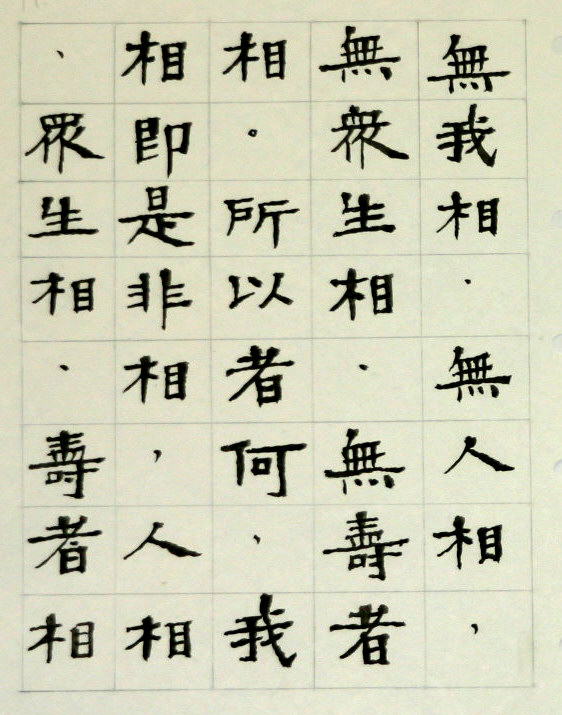 無我相、無人相，
無眾生相、無壽者
相。所以者何，我
相即是非相，人相
、眾生相、壽者相